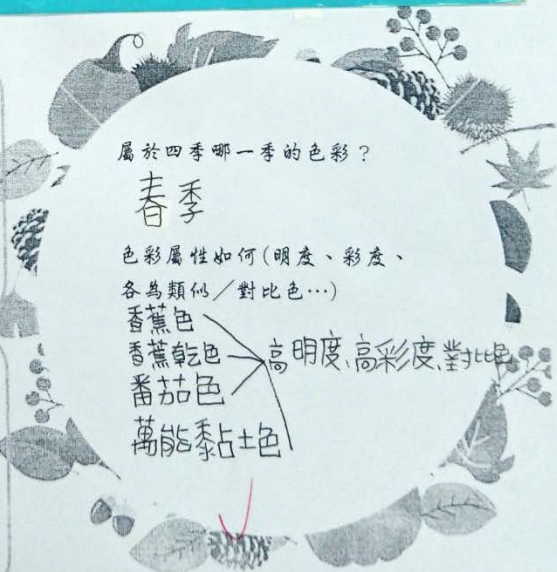 屬於四季哪一季的色彩？
春季
色彩屬性如何(明度、彩度、
各為類似／對比色…)
香蕉色
香蕉乾色
番茄色
萬能黏土色
高明度、高彩度、對比色